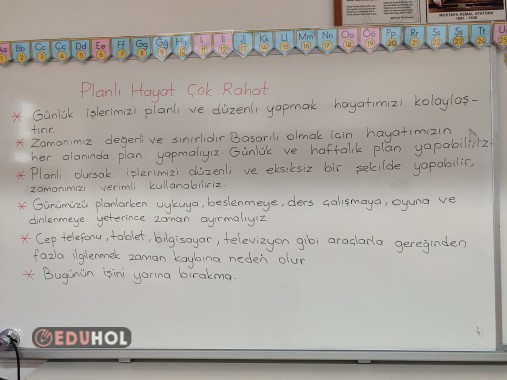 MUSTAFA KEMAL ATATÜRK
1881 - 1938
Aa Bb Cc Çç Dd Ee Ff Gg Ğğ Hh Iı İi Jj Kk Ll Mm Nn Oo Öö Pp Rr Ss Şş Tt Uu
1 2 3 4 5 6 7 8 9 10 11 12 13 14 15 16 17 18 19 20 21 22 23 24 25
Planlı Hayat Çok Rahat
* Günlük işlerimizi planlı ve düzenli yapmak hayatımızı kolaylaş-
tırır.
* Zamanımız değerli ve sınırlıdır. Başarılı olmak için hayatımızın
her alanında plan yapmalıyız. Günlük ve haftalık plan yapabiliriz.
* Planlı olursak işlerimizi düzenli ve eksiksiz bir şekilde yapabilir,
zamanımızı verimli kullanabiliriz.
* Günümüzü planlarken uykuya, beslenmeye, ders çalışmaya, oyuna ve
dinlenmeye yeterince zaman ayırmalıyız.
* Cep telefonu, tablet, bilgisayar, televizyon gibi araçlarla gereğinden
fazla ilgilenmek zaman kaybına neden olur.
* Bugünün işini yarına bırakma.
EDUHOL